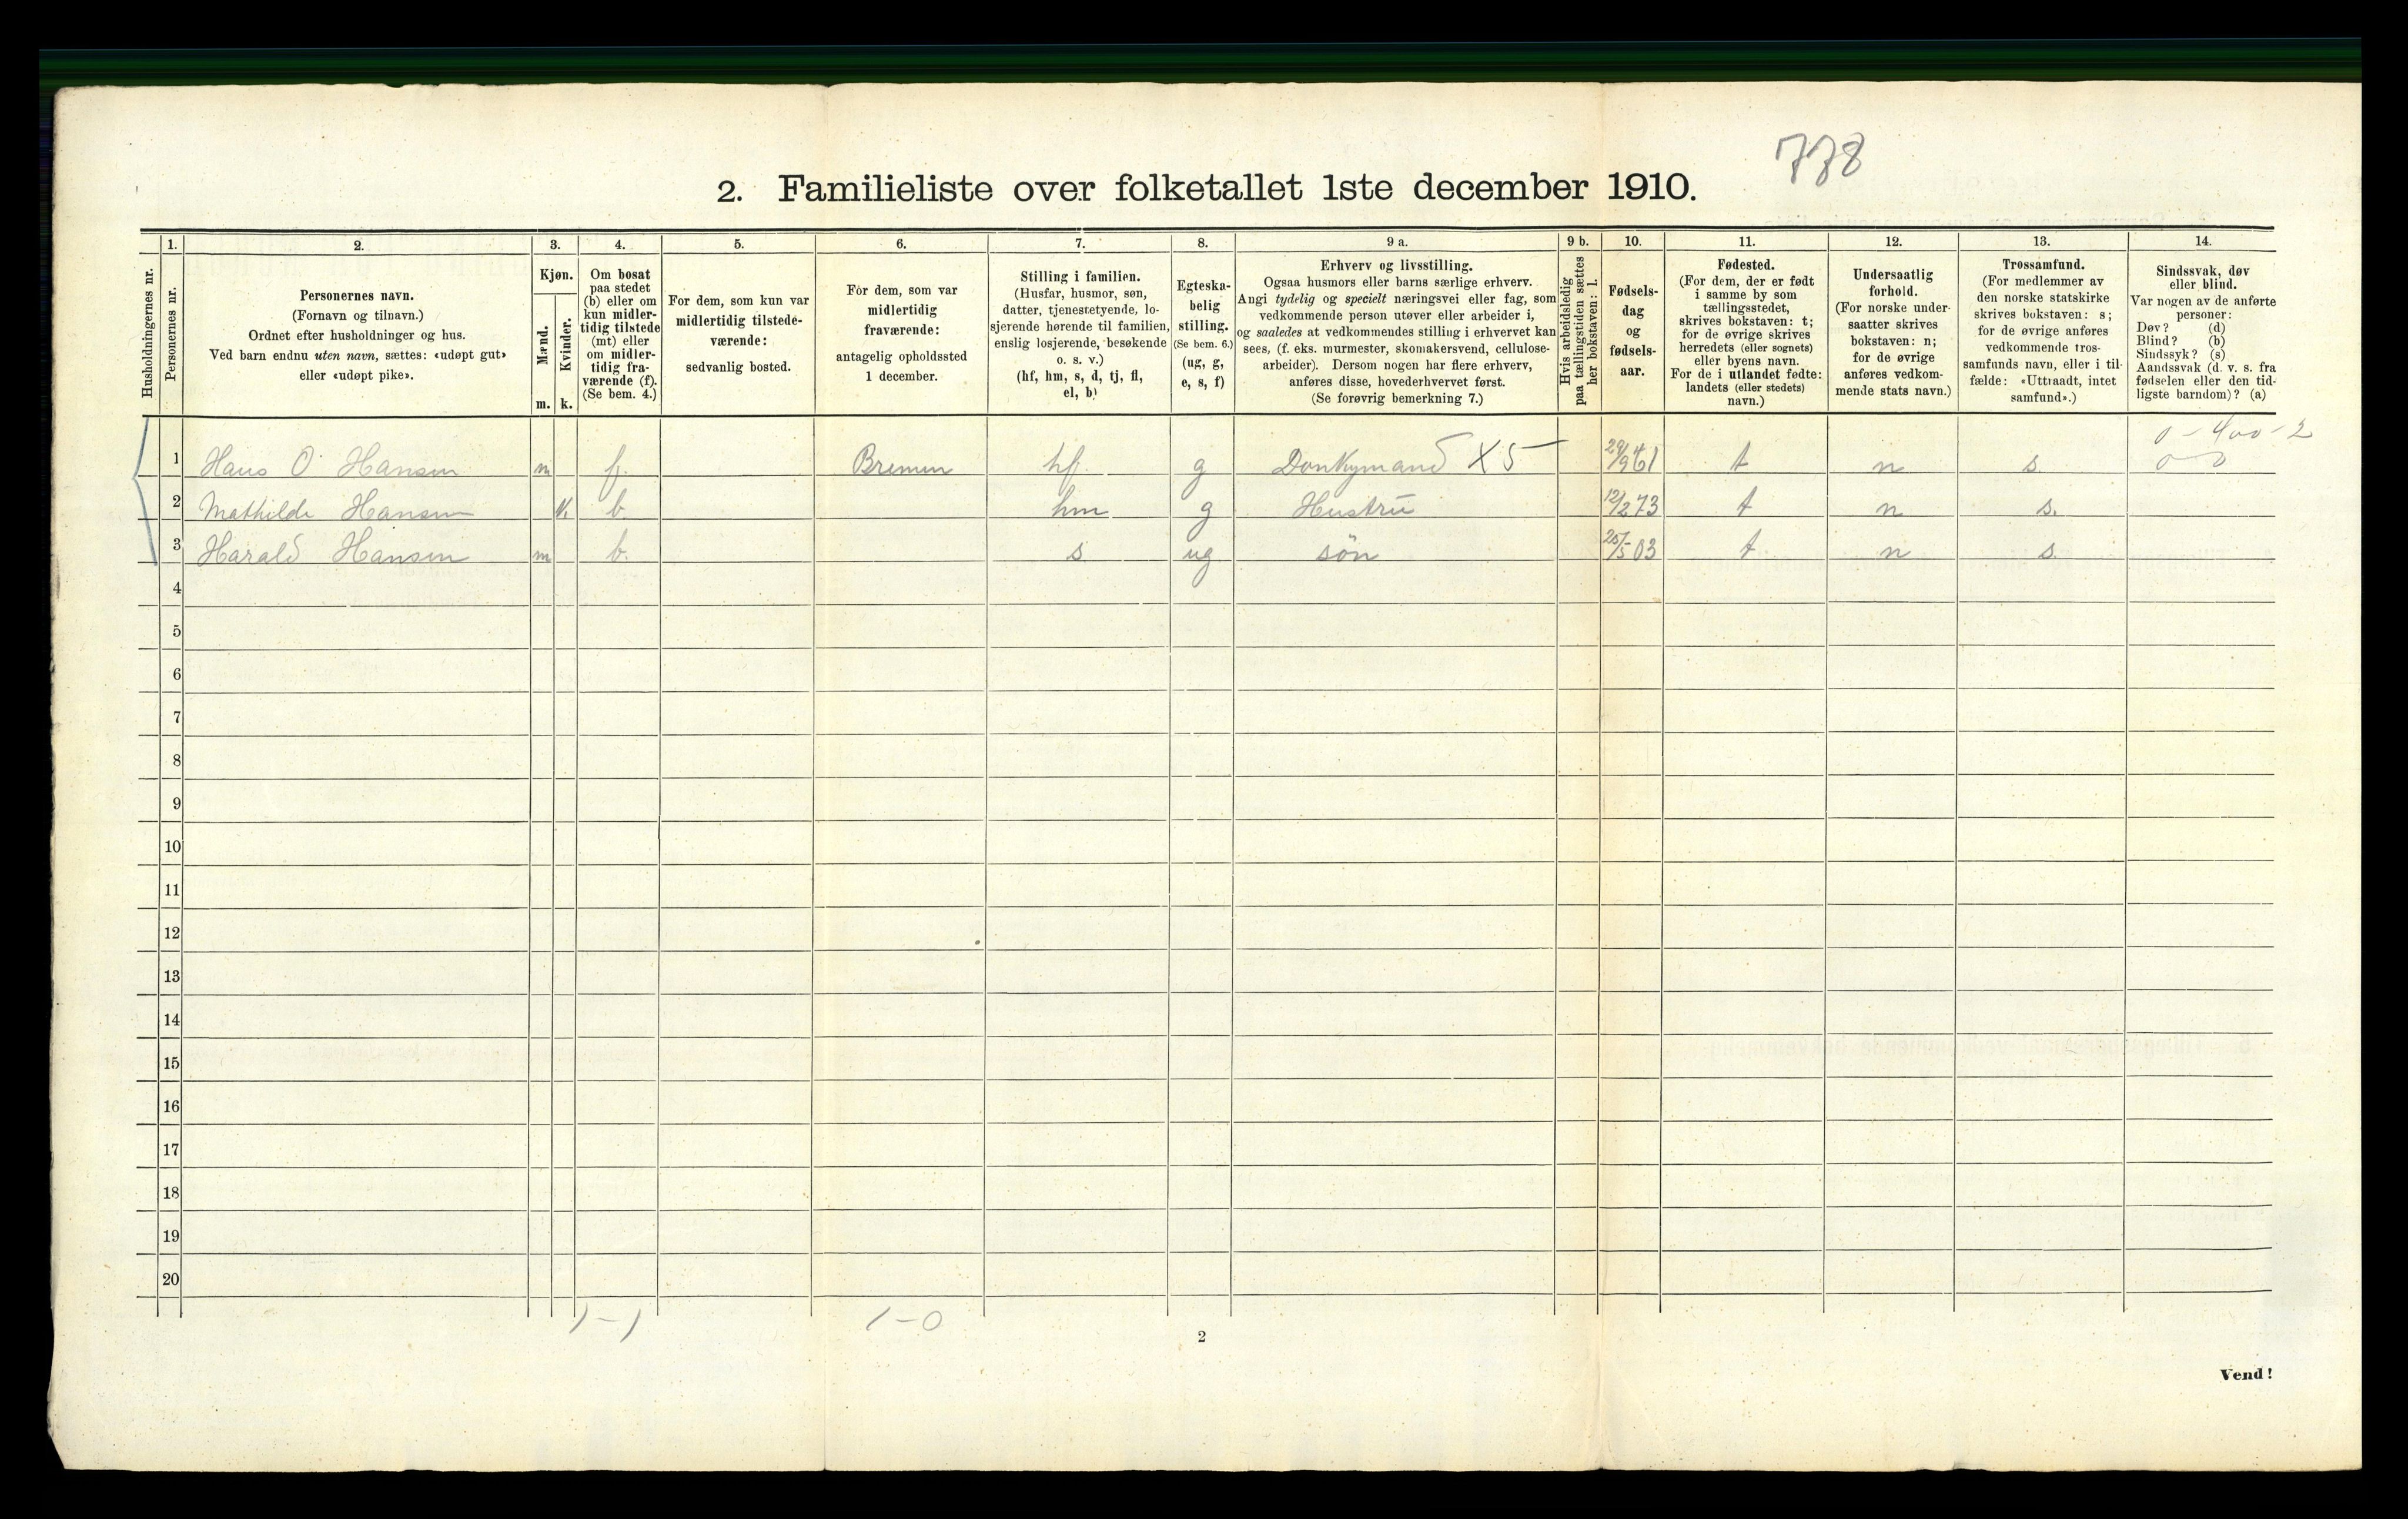 778
2. Familieliste over folketallet 1ste december 1910.
Husholdningernes nr.
1.
Personernes nr.
2.
Personernes navn.
(Fornavn og tilnavn.)
Ordnet efter husholdninger og hus.
Ved barn endnu uten navn, sættes: «udøpt gut»
eller «udøpt pike».
3.
Kjøn.
Mænd.
Kvinder.
m. k.
4.
Om bosat
paa stedet
(b) eller om
kun midler-
tidig tilstede
(mt) eller
om midler-
tidig fra-
værende (f).
(Se bem. 4.)
5.
For dem, som kun var
midlertidig tilstede-
værende:
sedvanlig bosted.
6.
For dem, som var
midlertidig
fraværende:
antagelig opholdssted
1 december.
7.
Stilling i familien.
(Husfar, husmor, søn,
datter, tjenestetyende, lo-
sjerende hørende til familien,
enslig losjerende, besøkende
o. s. v.)
(hf, hm, s, d, tj, fl,
el, b)
8.
Egteska-
belig
stilling.
(Se bem. 6.)
(ug, g,
e, s, f)
9 a.
Erhverv og livsstilling.
Ogsaa husmors eller barns særlige erhverv.
Angi tydelig og specielt næringsvei eller fag, som
vedkommende person utøver eller arbeider i,
og saaledes at vedkommendes stilling i erhvervet kan
sees, (f. eks. murmester, skomakersvend, cellulose-
arbeider). Dersom nogen har flere erhverv,
anføres disse, hovederhvervet først.
(Se forøvrig bemerkning 7.)
9 b.
Hvis arbeidsledig
paa tællingstiden sættes
her bokstaven: l.
10.
Fødsels-
dag
og
fødsels-
aar.
11.
Fødested.
(For dem, der er født
i samme by som
tællingsstedet,
skrives bokstaven: t;
for de øvrige skrives
herredets (eller sognets)
eller byens navn.
For de i utlandet fødte:
landets (eller stedets)
navn.)
12.
Undersaatlig
forhold.
(For norske under-
saatter skrives
bokstaven: n;
for de øvrige
anføres vedkom-
mende stats navn.)
13.
Trossamfund.
(For medlemmer av
den norske statskirke
skrives bokstaven: s;
for de øvrige anføres
vedkommende tros-
samfunds navn, eller i til-
fælde: «Uttraadt, intet
samfund».)
14.
Sindssvak, døv
eller blind.
Var nogen av de anførte
personer:
Døv? (d)
Blind? (b)
Sindssyk? (s)
Aandssvak (d. v. s. fra
fødselen eller den tid-
ligste barndom)? (a)
0 - 400 - 2
0 - 0
1 Hans O Hansen m f. Bremen hf. g Donkymand X 5 29/9 61 t n s.
2 Mathilde Hansen k. b. hm g Hustru 12/2 73 t n s.
3 Harald Hansen m b. s ug søn 25/5 03 t n s.
4
5
6
7
8
9
10
11
12
13
14
15
16
17
18
19
20
1 - 1 1 - 0
2
Vend!